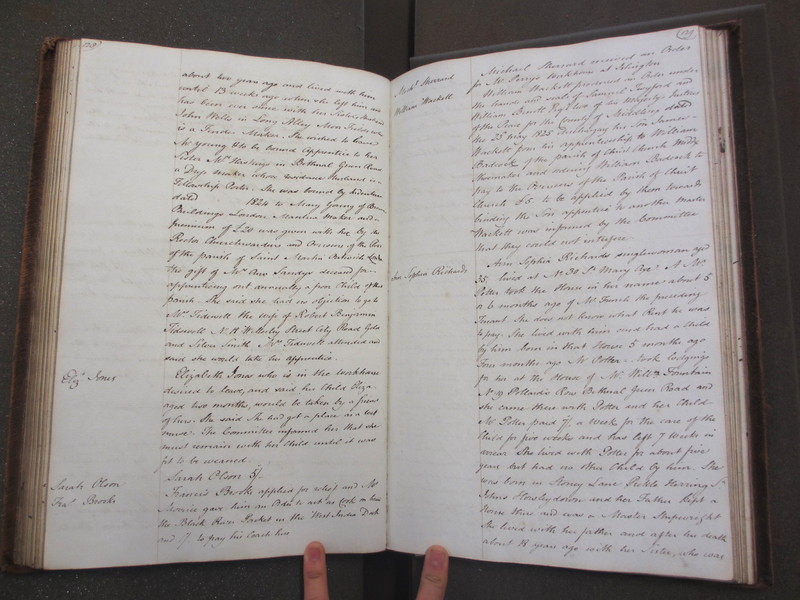 about two years ago and lived with him
until 13 weeks ago when she left him and
has been ever since with her Sister
John Wells in Long Alley Moor Fields who
is a Fender Maker. She wished to have
Mr Young to be bound Apprentice to her
Sister Mrs Hastings in Bethnal Green Road
a Dress maker whose husband is a
Fellowship Porter. She was bound by Indenture
dated 1824 to Mary Young of
Buildings London Mantua Maker and a
premium of £20 was given with her by the
Rector Churchwardens and Overseers of the Poor
of the parish of Saint Martin Outwich London
the gift of Mrs Ann Sandys deceased for
apprenticing out annually a poor Child of this
parish. She said she had no objection to go to
Mrs Tidswell the wife of Robert Benjamin
Tidswell No Wellesley Street City Road Gold
and Silver Smith Mrs Tidswell attended and
said she would take her apprentice.
Elizth Jones
Elizabeth Jones who is in the workhouse
desired to leave, and said her Child Eliza
aged two months, would be taken by a friend
of hers. She said she had got a place as a wet
nurse. The Committee informed her that she
must remain with her Child until it was
fit to be weaned
Sarah Olson
Sarah Olson 5/.
Fras Brooks
Francis Brooks applied for relief and Mr
Morris gave him an Order to act as Cook on board
the Black River Packet in the West India Dock
and 1/. to pay his Coach hire
129
Michl Sherrard
Michael Sherrard received an Order
for Mr Perrys Workhouse at Islington
William Wackett
William Wackett presented an Order under
the hands and seals of Samuel Twyford and
William Bennett Esqrs two of his Majestys Justices
of the Peace for the County of Middlesex dated
the 25 May 1825 Discharging his Son James
Wackett from his apprenticeship to William
Badcock of the parish of Christ Church Middx
Shoemaker and ordering William Badcock to
Pay to the Overseers of the Parish of Christ
Church £5 to be applied by them towards
binding the Son apprentice to another Master
Wackett was informed by the Committee
that they could not interfere
Ann Sophia Richards
Ann Sophia Richards singlewoman aged
35, lived at No 30 St Mary Axe. A Mr
Potter took the House in her name about 5
or 6 months ago of Mr French the preceding
Tenant. She does not know what Rent he was
to pay. She lived with him and had a Child
by him born in that House 5 months ago
Four months ago Mr Potter took lodgings
for her at the House of Mr Willm Fountain
No 19 Pollards Row Bethnal Green Road and
she came there with Potter and her Child
Mr Potter paid 7/. a week for the care of the
Child for five weeks and has left 7 weeks in
arrear She lived with Potter for about five
years but had no other Child by him. She
was born in Stoney Lane Pickle Herring St
Johns Horselydown and her Father kept a
House there and was a Master Shipwright
She lived with her father and after his death
about 18 years ago with her Sister, who was